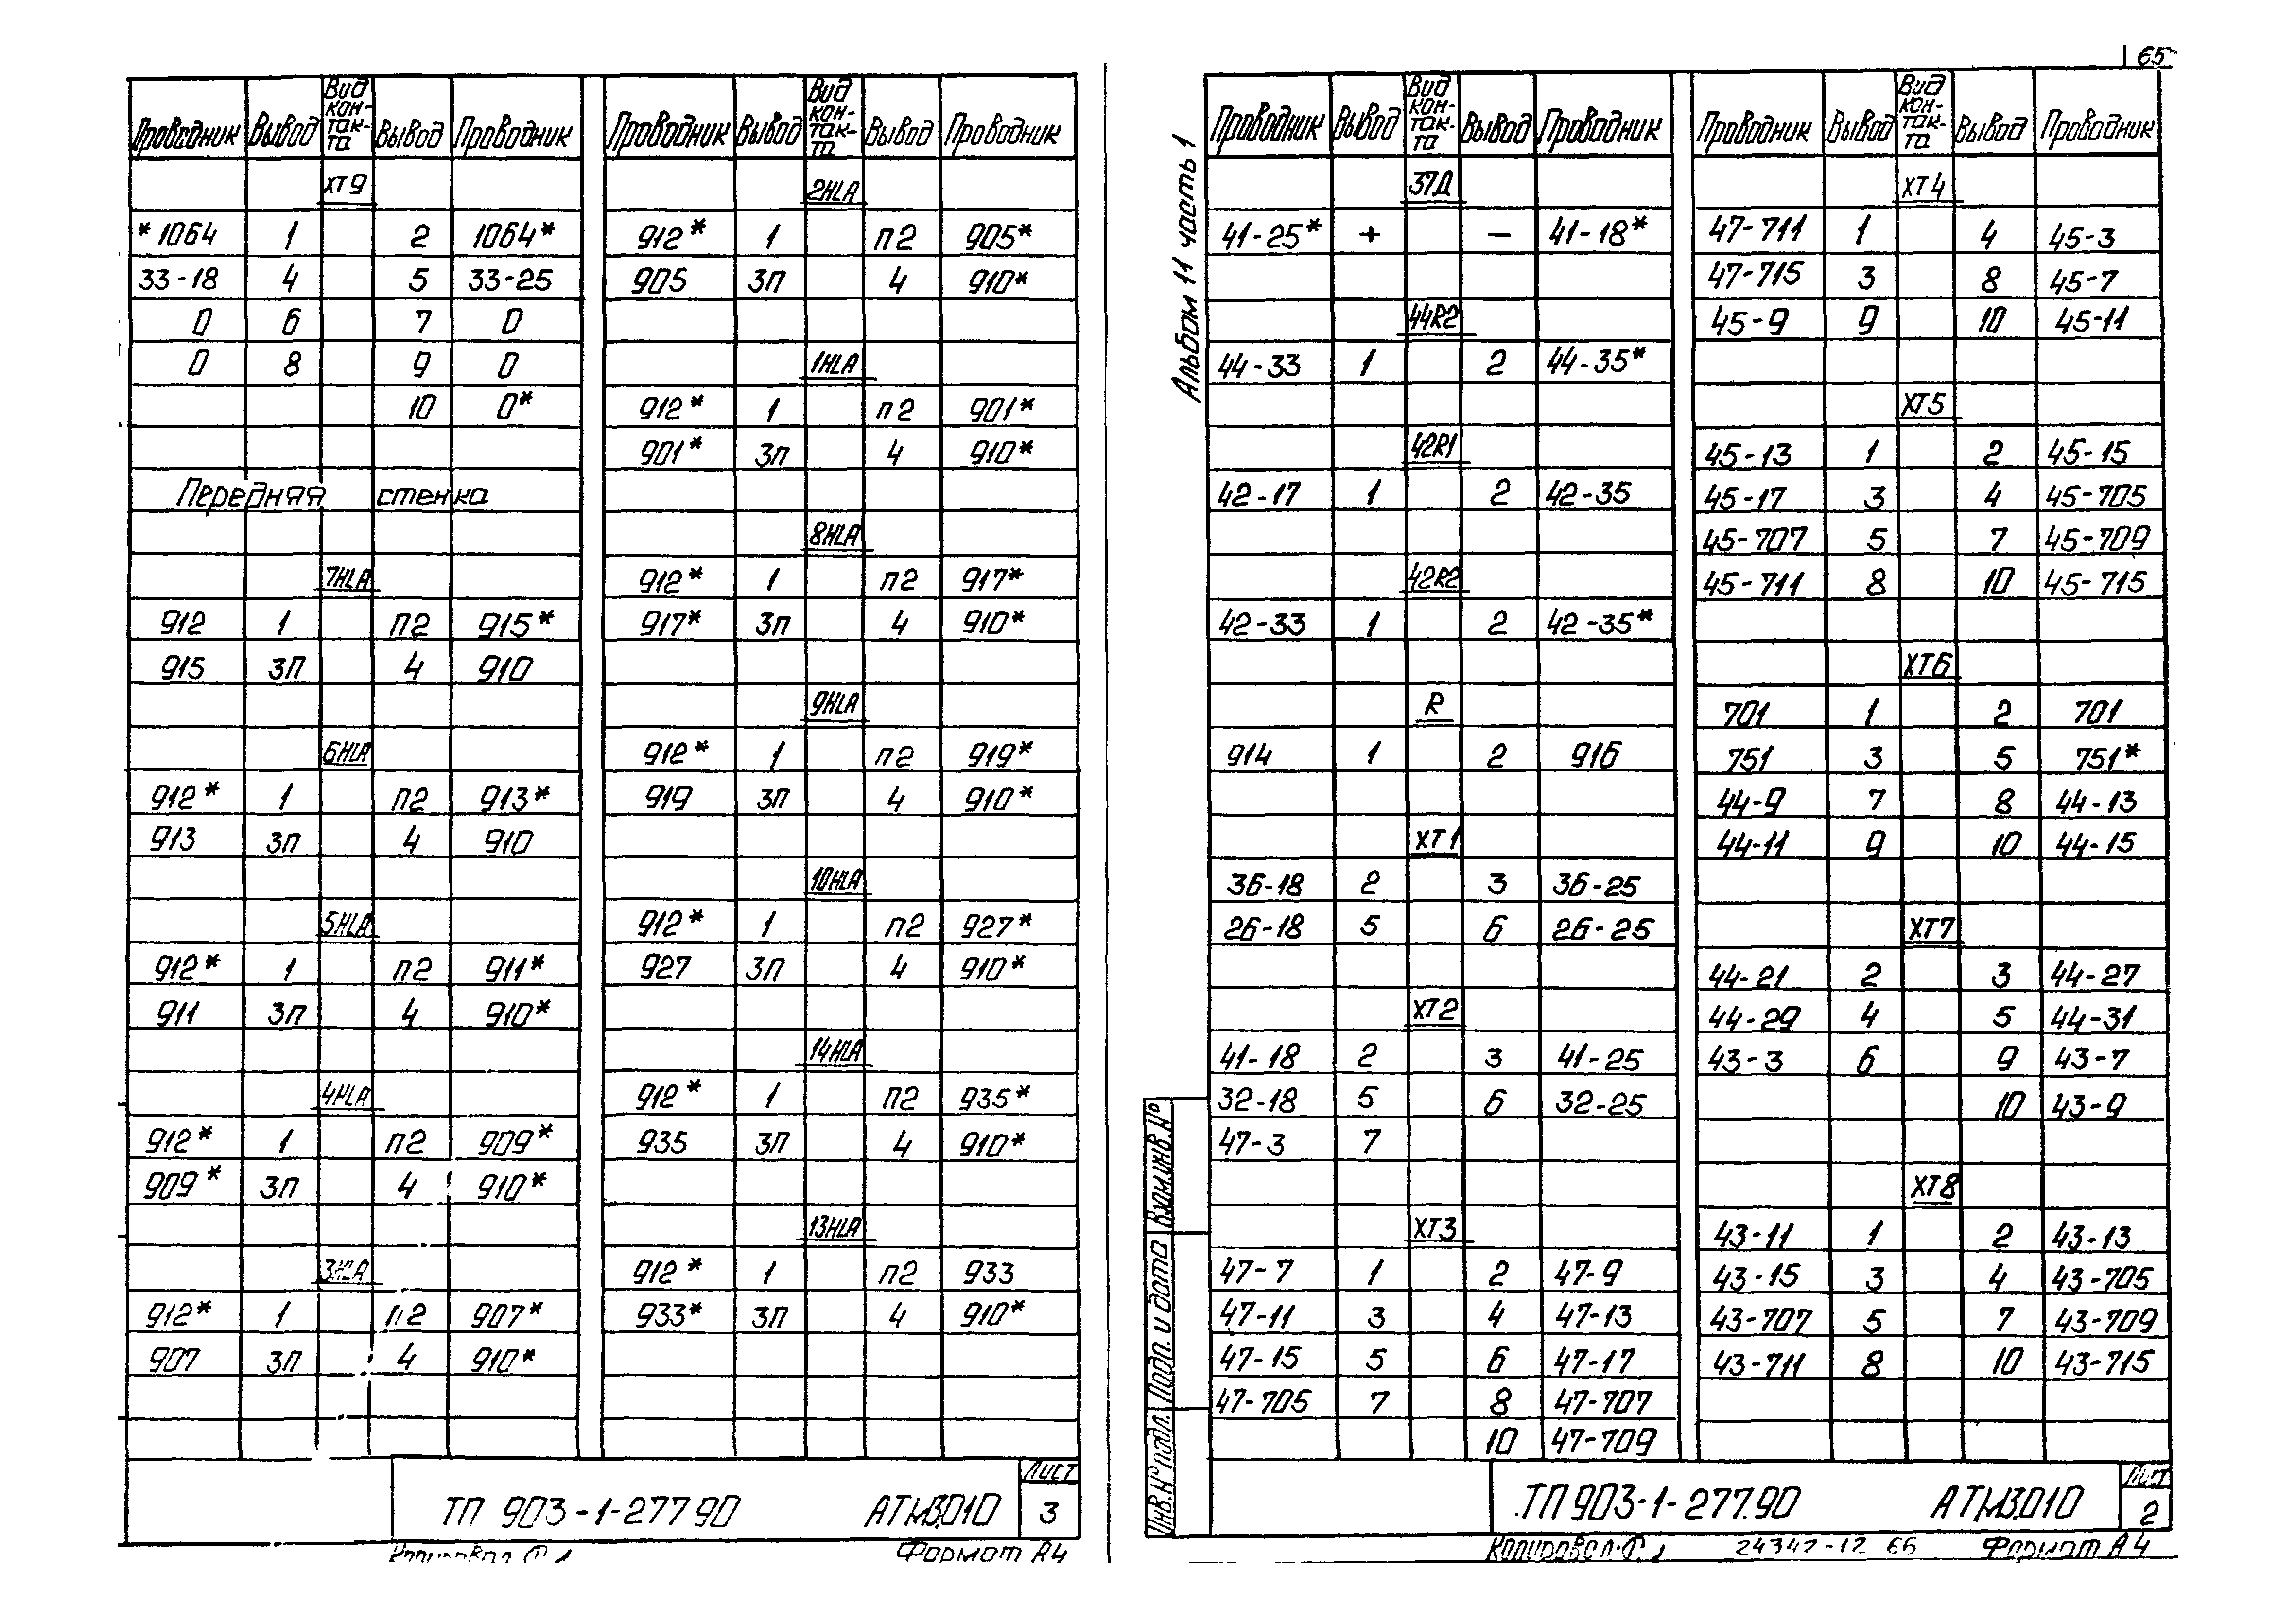 65
Проводник Вывод Вид кон-так-та Вывод Проводник Проводник Вывод Вид кон-так-та Вывод Проводник
ХТ9 2HLA
*1064 1 2 1064* 912* 1 п2 905*
33-18 4 5 33-25 905 3п 4 910*
0 6 7 0
0 8 9 0 1HLA
10 0* 912* 1 п2 901*
901* 3п 4 910*
Передняя стенка
8HLA
7HLA 912* 1 п2 917*
912 1 п2 915* 917* 3п 4 910*
915 3п 4 910
9HLA
6HLA 912* 1 п2 919*
912* 1 п2 913* 919 3п 4 910*
913 3п 4 910
10HLA
5HLA 912* 1 п2 927*
912* 1 п2 911* 927 3п 4 910*
911 3п 4 910*
14HLA
4HLA 912* 1 п2 935*
912* 1 п2 909* 935 3п 4 910*
909* 3п 4 910*
13HLA
3HLA 912* 1 п2 933
912* 1 п2 907* 933* 3п 4 910*
907 3п 4 910*
ТП 903-1-277.90 АТМ3.010 Лист 3
Копировал Формат А4
Альбом 11 часть 1
Проводник Вывод Вид кон-так-та Вывод Проводник Проводник Вывод Вид кон-так-та Вывод Проводник
37Д ХТ4
41-25* + — 41-18* 47-711 1 4 45-3
47-715 3 8 45-7
44R2 45-9 9 10 45-11
44-33 1 2 44-35*
ХТ5
42R1 45-13 1 2 45-15
42-17 1 2 42-35 45-17 3 4 45-705
45-707 5 7 45-709
42R2 45-711 8 10 45-715
42-33 1 2 42-35*
ХТ6
R 701 1 2 701
914 1 2 916 751 3 5 751*
44-9 7 8 44-13
ХТ1 44-11 9 10 44-15
36-18 2 3 36-25
26-18 5 6 26-25 ХТ7
44-21 2 3 44-27
ХТ2 44-29 4 5 44-31
41-18 2 3 41-25 43-3 6 9 43-7
32-18 5 6 32-25 10 43-9
47-3 7
ХТ8
ХТ3 43-11 1 2 43-13
47-7 1 2 47-9 43-15 3 4 43-705
47-11 3 4 47-13 43-707 5 7 43-709
47-15 5 6 47-17 43-711 8 10 43-715
47-705 7 8 47-707
10 47-709
Инв.№ подл. Подп. и дата Взам.инв.№
ТП 903-1-277.90 АТМ3.010 Лист 2
Копировал 24347-12 66 Формат А4